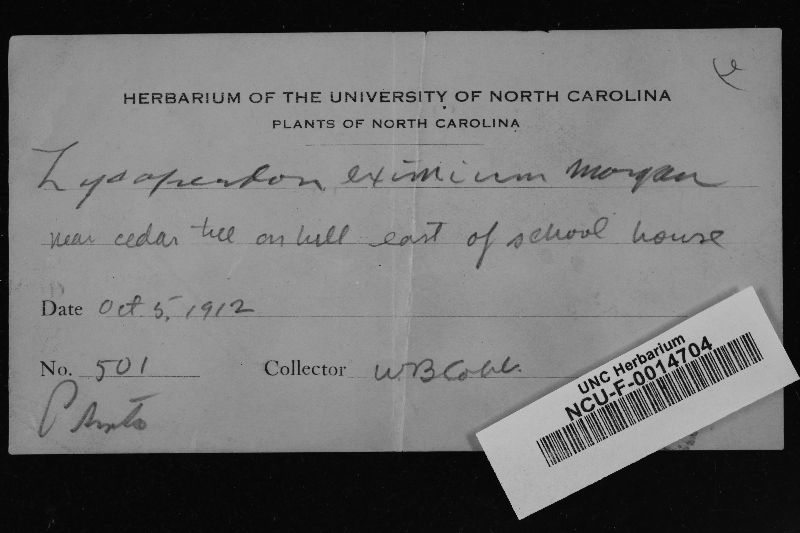 HERBARIUM OF THE UNIVERSITY OF NORTH CAROLINA
PLANTS OF NORTH CAROLINA
Lycoperdon eximium Morgan
near cedar tree on hill east of school house
Date Oct. 5, 1912
No. 501 Collector W B Cobb.
UNC Herbarium
NCU-F-0014704